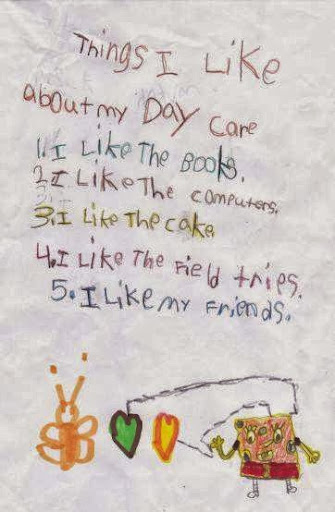 Things I Like
about my Day Care
1. I Like The Books.
2. I Like The computers.
3. I Like The cake
4. I Like The Field tries.
5. I Like my Friends.